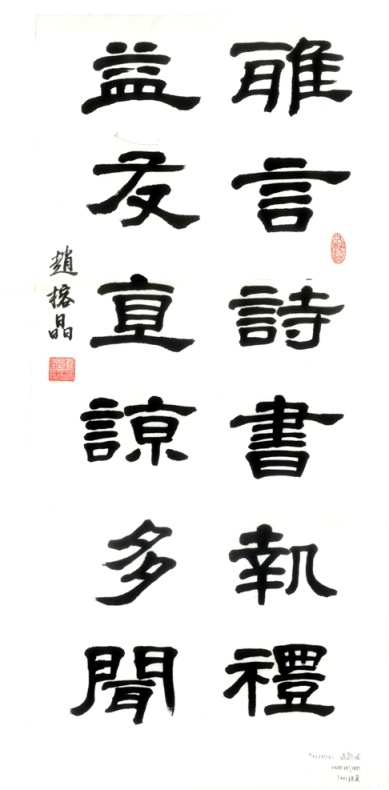 雅言詩書執禮
益友直諒多聞
趙榕晶